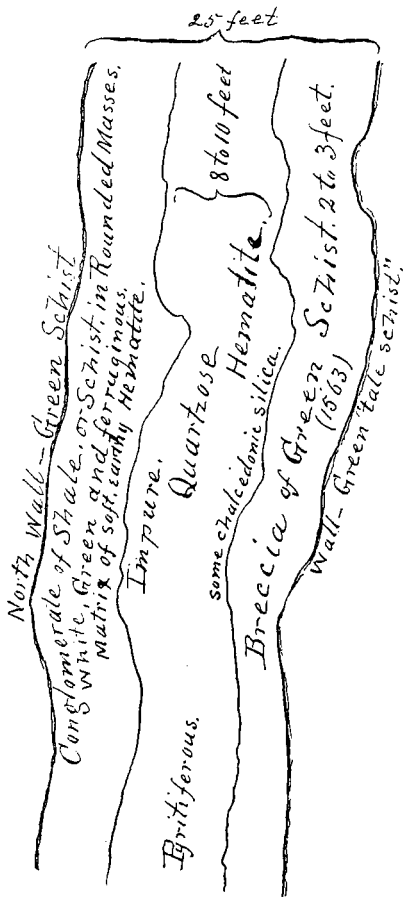 25 feet
North Wall - Green Schist
Conglomerate of Shale or Schist in Rounded Masses.
White, Green and ferruginous.
Matrix of soft, earthy Hematite.
8 to 10 feet
Impure.
Quartzose
Hematite.
some chalcedonic silica.
Pyritiferous.
Breccia of Green Schist 2 to 3 feet.
(1563)
Wall - Green "talc schist"